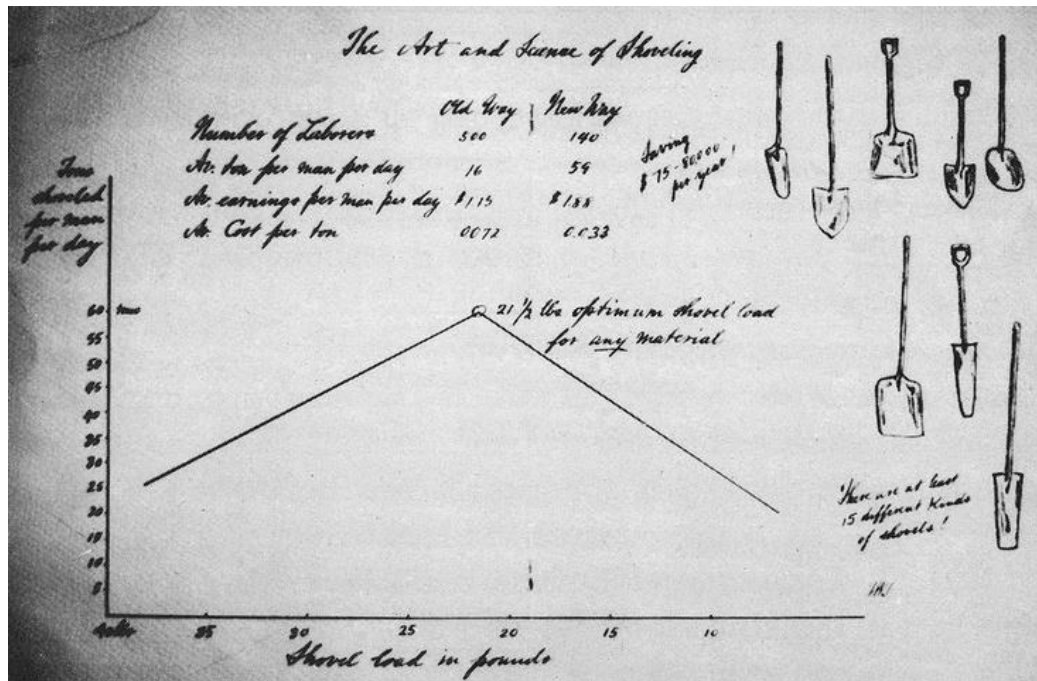 The Art and Science of Shoveling
Old Way New Way
Number of Laborers 500 140
Av. ton per man per day 16 59
Av. earnings per man per day $1.15 $1.88
Av. Cost per ton .0072 0.033
Saving
$75-80000
per year!
Tons
shoveled
per man
per day
60 tons
55
50
45
40
35
30
25
20
15
10
5
21 1/2 lbs optimum shovel load
for any material
There are at least
15 different kinds
of shovels!
40 lbs 35 30 25 20 15 10
Shovel load in pounds